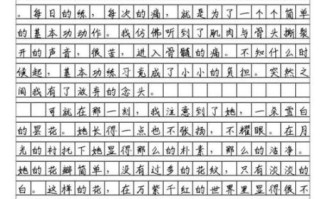 。每日的练，每次的痛，就是为了一个个简单
的基本功动作。我仿佛听到了肌肉与骨头撕裂
开的声音，很苦，进入骨髓的痛。不知什么时
候起，基本功练习竟成了小小的负担。突然之
间我有了放弃的念头。
可就在那一刻，我注意到了她，一朵雪白
的昙花。她长得一点也不张扬，不耀眼。在月
光的衬托下她显得那么的朴素，那么的洁净。
她的花瓣简单，没有过多的花纹，只有淡淡的
白。这样的花，在万紫千红的世界里显得很不